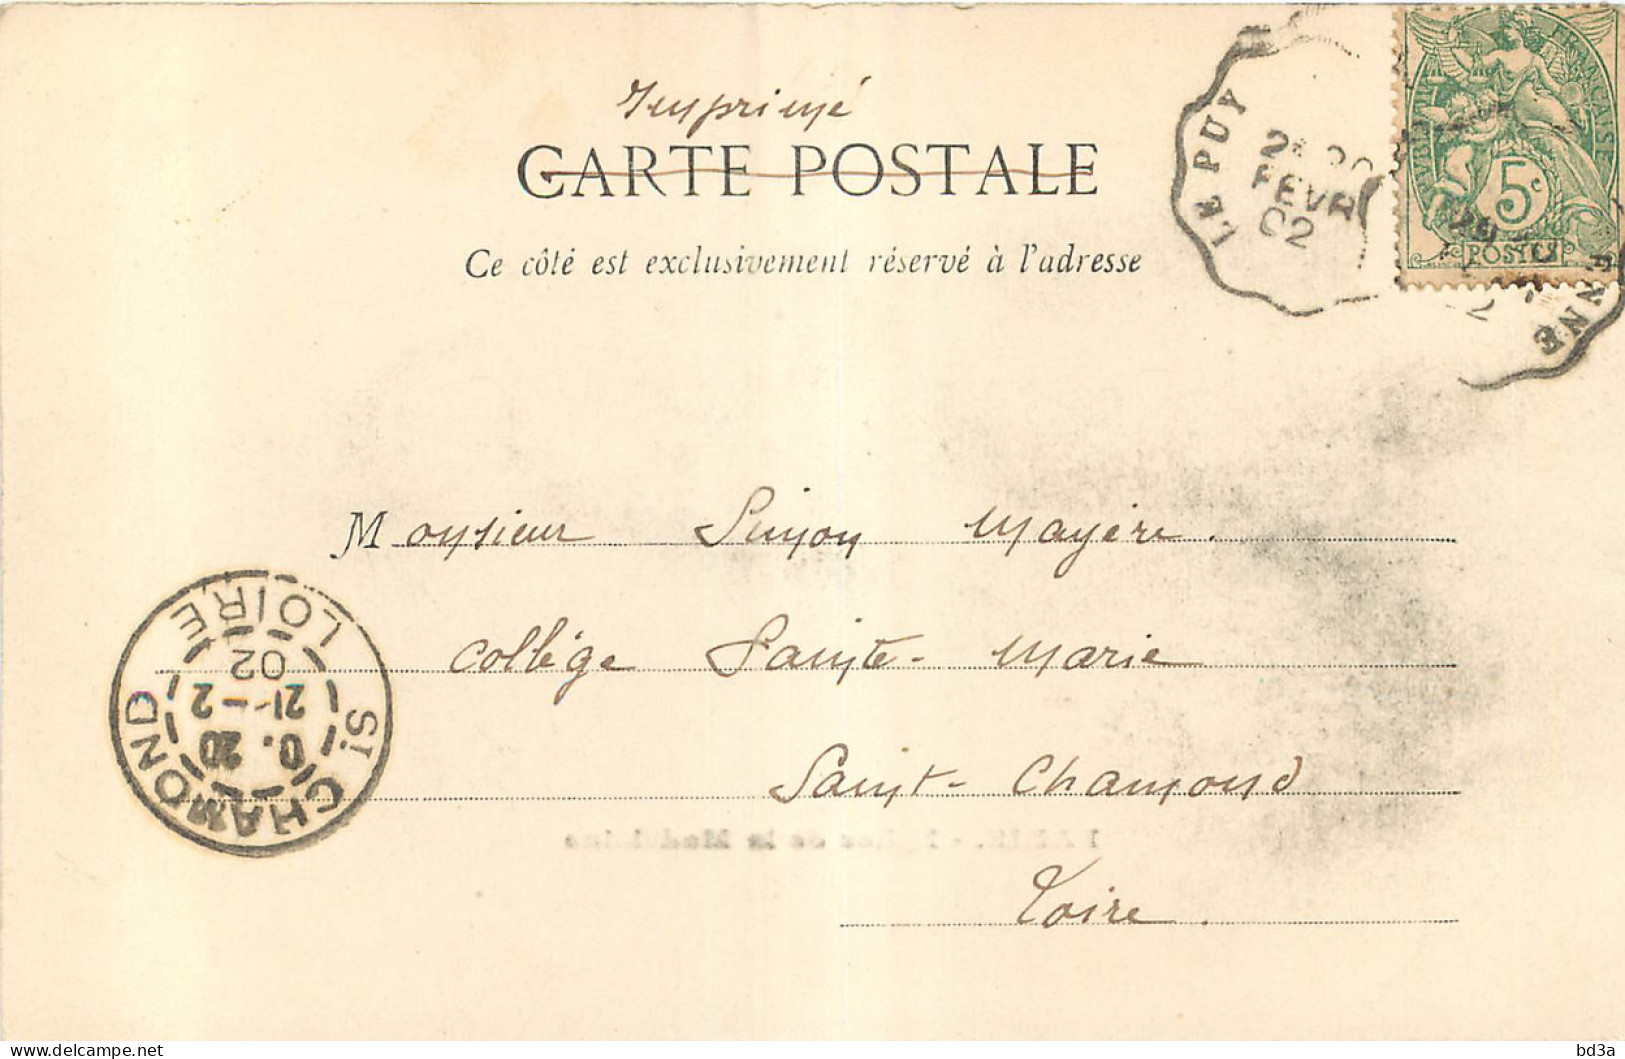 Imprimé
CARTE POSTALE
Ce côté est exclusivement réservé à l'adresse
LE PUY
FEVR
02
FRANÇAISE
5c
POSTES
ENNE
Monsieur Simon Mayère.
Collège Sainte-Marie
Saint-Chamond
Loire.
ST CHAMOND
0. 20
21 -2
02
LOIRE
bd3a